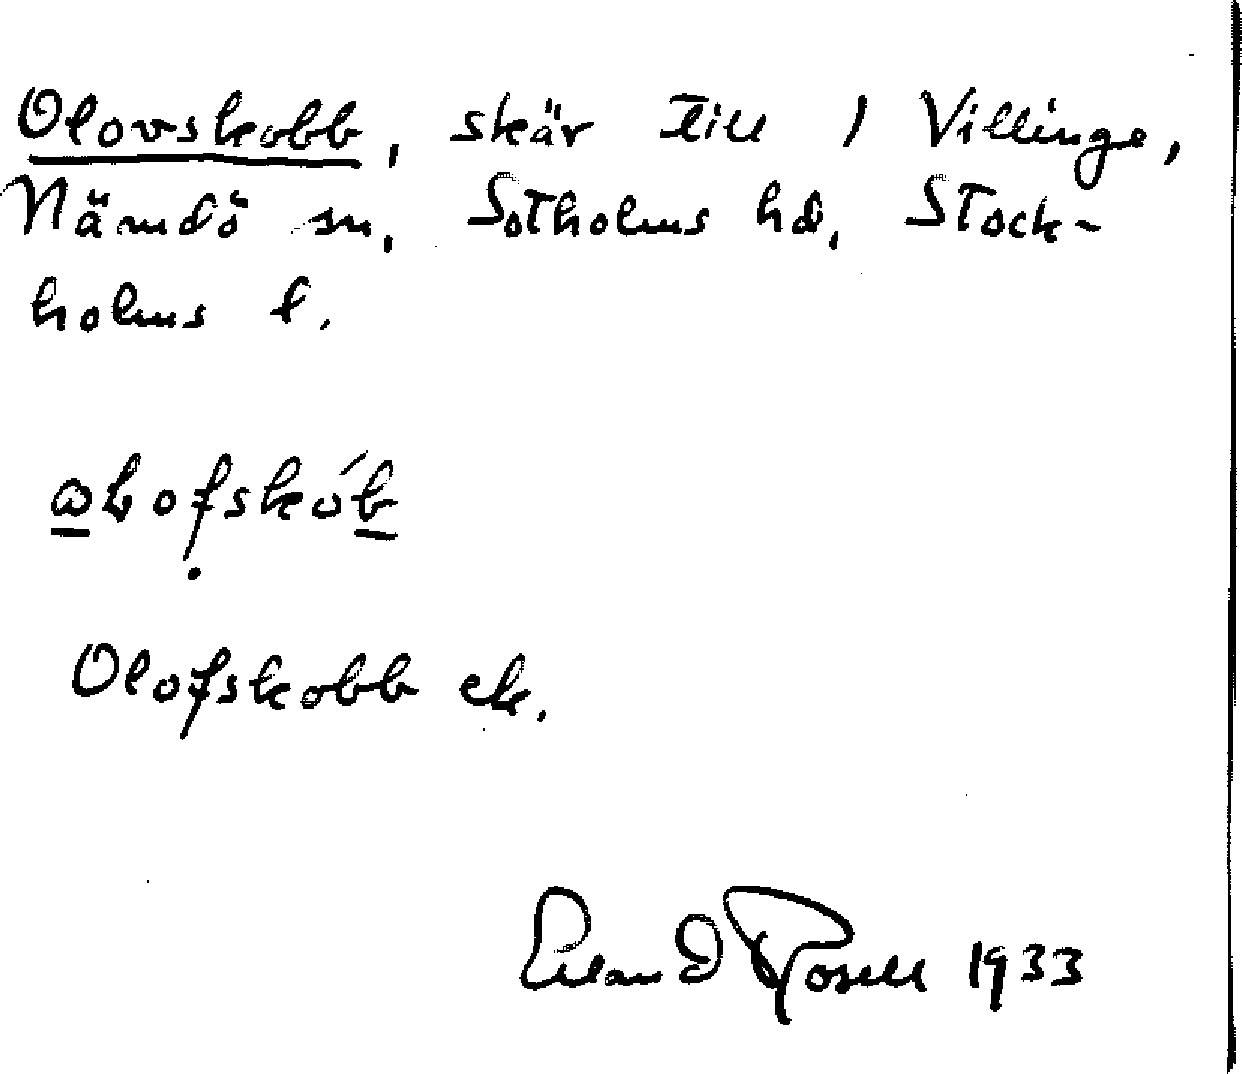 Olovskobb, skär till 1 Villinge,
Nämdö sn, Sotholms hd, Stock-
holms l.
Olofskobb ek.
Erland Rosell 1933